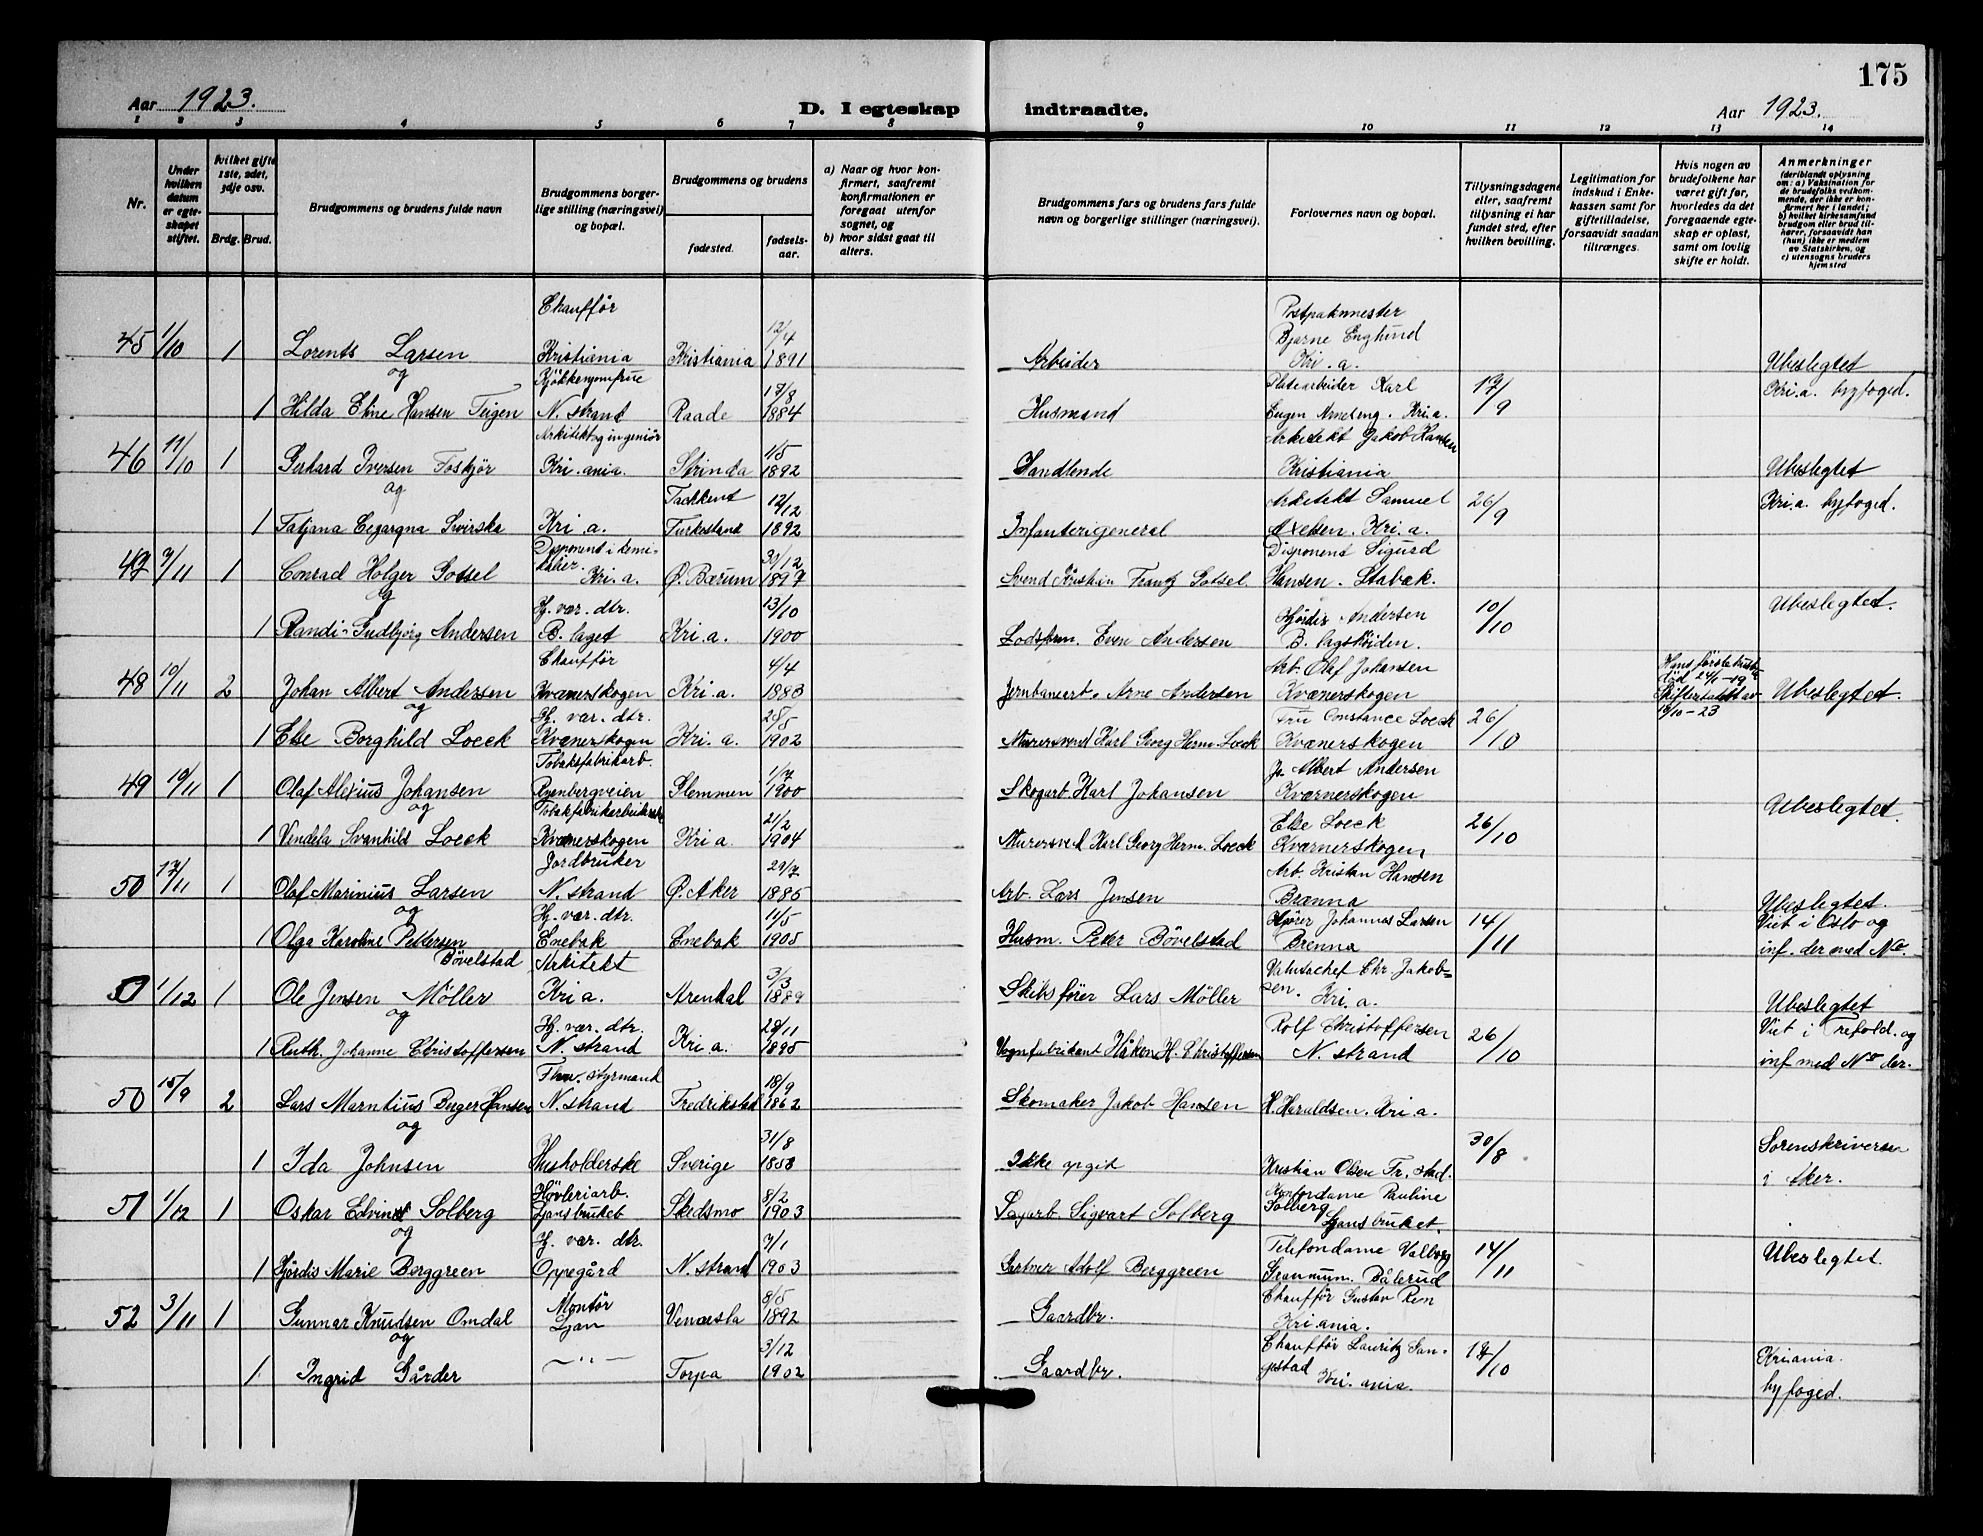 175
Aar 1923.
D. I egteskap indtraadte.
Aar 1923.
1 2 3 4 5 6 7 8 9 10 11 12 13 14
Nr.
Under hvilken datum er egteskapet stiftet.
hvilket gifte 1ste, 2det, 3dje osv.
Brdg. Brud.
Brudgommens og brudens fulde navn
Brudgommens borgerlige stilling (næringsvei) og bopæl.
Brudgommens og brudens
fødested.
fødselsaar.
a) Naar og hvor konfirmert, saafremt konfirmationen er foregaat utenfor sognet, og
b) hvor sidst gaat til alters.
Brudgommens fars og brudens fars fulde navn og borgerlige stillinger (næringsvei).
Forlovernes navn og bopæl.
Tillysningsdagene eller, saafremt tillysning ei har fundet sted, efter hvilken bevilling.
Legitimation for indskud i Enkekassen samt for giftetilladelse, forsaavidt saadan tiltrænges.
Hvis nogen av brudefolkene har været gift før, hvorledes da det foregaaende egteskap er opløst, samt om lovlig skifte er holdt.
Anmerkninger (deriblandt oplysning om: a) Vaksination for de brudefolks vedkommende, der ikke er konfirmert her i landet; b) hvilket kirkesamfund brudgom eller brud tilhører, forsaavidt han (hun) ikke er medlem av Statskirken, og c) utensogns bruders hjemsted
45 1/10 1 Lorents Larsen Chauffør Kristiania Kristiania 12/4 1891 Arbeider Postpakmester Bjarne Englund Kri.a. Ubeslegtet
og
1 Hilda Eline Hansen Teigen Kjøkkenjomfrue N. strand Raade 17/8 1884 Husmand Platearbeider Karl Eugen Arneseng. Kri.a. 17/9 Kri.a. byfoged.
46 11/10 1 Gerhard Iversen Foskjør Arkitekt og ingeniør Kri.ania. Strinda 1/5 1892 Handlende Arkitekt Jakob Hansen Kristiania Ubeslegtet
og
1 Tatjana Svirska Kri.a. Tachkent Turkestand 12/12 1892 Infanterigeneral Arkitekt Samuel Axelsen. Kri.a. 26/9 Kri.a. byfoged.
47 7/11 1 Conrad Holger Gotsel Disponent i kemikalier. Kri.a. Ø. Bærum 30/12 1897 Svend Kristin Frantz Gotsel Disponent Sigurd Hansen. Stabæk.
og
1 Randi Gudbjørg Andersen Hj. vær. dtr. B. laget Kri.a. 13/10 1900 Even Andersen Hjørdis Andersen B. lagshøiden. 10/10 Ubeslegtet.
48 10/11 2 Johan Albert Andersen Chauffør Kværnerskogen Kri.a. 4/4 1883 Jernbanearb. Arne Andersen Arb. Olaf Johansen Kværnerskogen Hans første hustr. død 24/1-19 Skifteattest av 19/10-23 Ubeslegtet.
og
1 Else Borghild Loeck Hj. vær. dtr. Kværnerskogen Kri.a. 28/5 1902 Murersvend Karl Georg Herm. Loeck Fru Constance Loeck Kværnerskogen 26/10
49 10/11 1 Olaf Alexius Johansen Tobaksfabrikarb. Ryenbergveien Glemmen 1/7 1900 Skogarb. Karl Johansen Jo. Albert Andersen Kværnerskogen Ubeslegtet.
og
1 Vendela Svanhild Loeck Tobakfabrikarbeiderske Kværnerskogen Kri.a. 21/2 1904 Murersvend Karl Georg Herm. Loeck Else Loeck Kværnerskogen 26/10
50 17/11 1 Olaf Marinius Larsen Jordbruker N. strand Ø. Aker 29/7 1885 Arb. Lars Jensen Arb. Kristian Hansen Brænna Ubeslegtet.
og
1 Olga Karoline Pettersen Bøvelstad Hj. vær. dtr. Enebak Enebak 11/5 1905 Husm. Peter Bøvelstad Johannes Larsen Brenna 14/11 Viet i Oslo og inf. der med No.
1/12 1 Ole Jensen Möller Arkitekt Kri.a. Arendal 3/3 1889 Skibsfører Lars Möller Chr. Jakobsen. Kri.a. Ubeslegtet
og
1 Ruth Johanne Christoffersen Hj. vær. dtr. N. strand Kri.a. 28/11 1895 Vognfabrikant Håken H. Christoffersen Rolf Christoffersen N. strand 26/10 Viet i Trefold. og inf med No der.
50 15/9 2 Lars Marntius Berger Hansen Fhv. styrmand N. strand Fredrikstad 18/9 1862 Skomaker Jakob Hansen H. Haraldsen. Kri.a.
og
1 Ida Johnsen Husholderske Sverige 31/8 1858 Ikke opgit Kristian Olsen Fr.stad. 30/8 Sorenskriveren i Aker.
51 1/12 1 Oskar Edvin Solberg Høvleriarb. Ljansbruket Skedsmo 8/2 1903 Sagarb. Sigvart Solberg Kontordame Pauline Solberg Ljansbruket.
og
1 Hjördis Marie Berggreen Hj. vær. dtr. Oppegård N. strand 7/1 1903 Gartner Adolf Berggreen Telefondame Valborg Granmum. Bålerud 14/11 Ubeslegtet.
52 3/11 1 Gunnar Knudsen Omdal Montør Ljan Vennesla 8/5 1892 Gaardbr. Chauffør Gustav Ren Kri.ania.
og
1 Ingrid Gårder — " — Torpa 3/12 1902 Gaardbr. Chauffør Lauritz Kri.ania. 17/10 Kri.ania. byfoged.